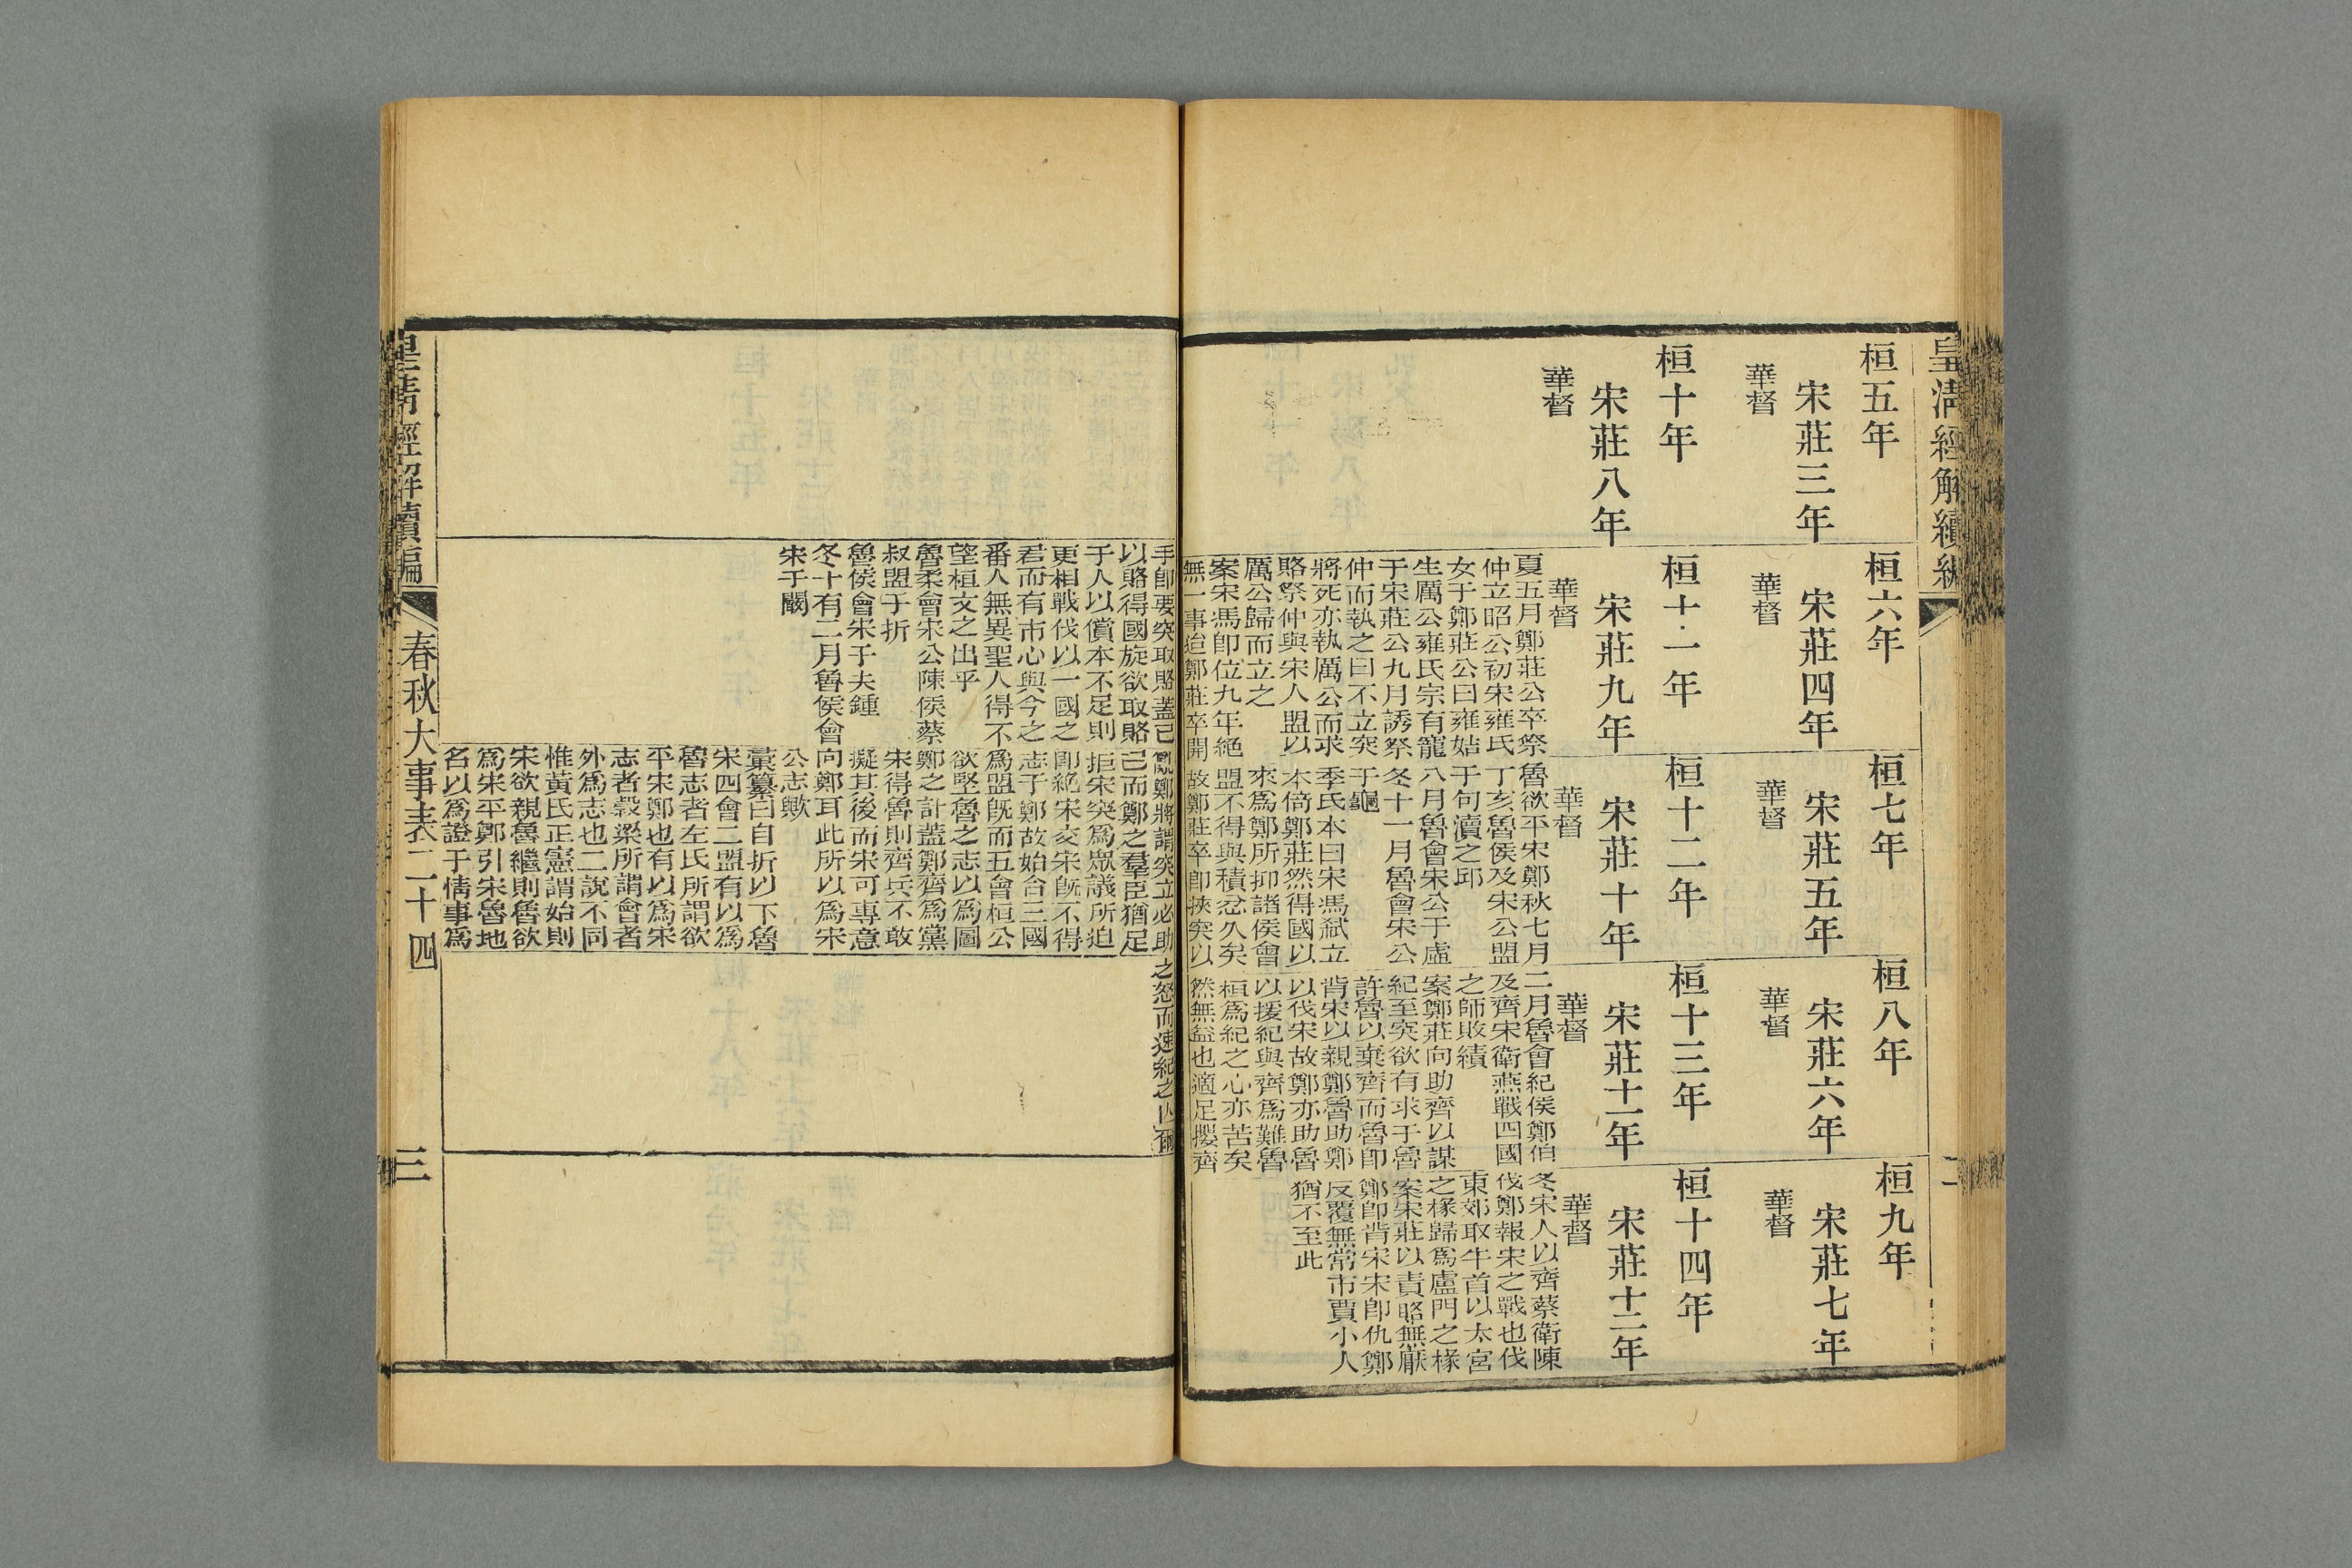 皇清經解續編
二
桓五年
宋莊三年
華督
桓六年
宋莊四年
華督
桓七年
宋莊五年
華督
桓八年
宋莊六年
華督
桓九年
宋莊七年
華督
桓十年
宋莊八年
華督
桓十一年
宋莊九年
華督
夏五月鄭莊公卒祭
仲立昭公初宋雍氏
女于鄭莊公曰雍姞
生厲公雍氏宗有寵
于宋莊公九月誘祭
仲而執之曰不立突
將死亦執厲公而求
賂祭仲與宋人盟以
厲公歸而立之
案宋馮卽位九年絕
無一事迨鄭莊卒開
手卽要突取賂蓋己
以賂得國旋欲取賂
于人以償本不足則
更相戰伐以一國之
君而有市心與今之
番人無異聖人得不
望桓文之出乎
魯柔會宋公陳侯蔡
叔盟于折
魯侯會宋于夫鍾
冬十有二月魯侯會
宋于闞
桓十二年
宋莊十年
華督
魯欲平宋鄭秋七月
丁亥魯侯及宋公盟
于句瀆之邱
八月魯會宋公于虛
冬十一月魯會宋公
于龜
季氏本曰宋馮弑立
本倚鄭莊然得國以
來爲鄭所抑諸侯會
盟不得與積忿久矣
故鄭莊卒卽挾突以
亂鄭將謂突立必助
己而鄭之羣臣猶足
拒宋突爲眾議所迫
卽絕宋交宋旣不得
志于鄭故始合三國
爲盟旣而五會桓公
欲堅魯之志以爲圖
鄭之計蓋鄭齊爲黨
宋得魯則齊兵不敢
擬其後而宋可專意
向鄭耳此所以爲宋
公志歟
彙纂曰自折以下魯
宋四會二盟有以爲
魯志者左氏所謂欲
平宋鄭也有以爲宋
志者穀梁所謂會者
外爲志也二說不同
惟黃氏正憲謂始則
宋欲親魯繼則魯欲
爲宋平鄭引宋魯地
名以爲證于情事爲
桓十三年
宋莊十一年
華督
二月魯會紀侯鄭伯
及齊宋衛燕戰四國
之師敗績
案鄭莊向助齊以謀
紀至突欲有求于魯
許魯以棄齊而魯卽
肯宋以親鄭魯助鄭
以伐宋故鄭亦助魯
以援紀與齊爲難魯
桓爲紀之心亦苦矣
然無益也適足攖齊
之怒而速紀之亡爾
桓十四年
宋莊十二年
華督
冬宋人以齊蔡衛陳
伐鄭報宋之戰也伐
東郊取牛首以大宮
之椽歸爲盧門之椽
案宋莊以責賂無厭
鄭卽背宋宋卽仇鄭
反覆無常市賈小人
猶不至此
皇清經解續編
春秋大事表二十四
三